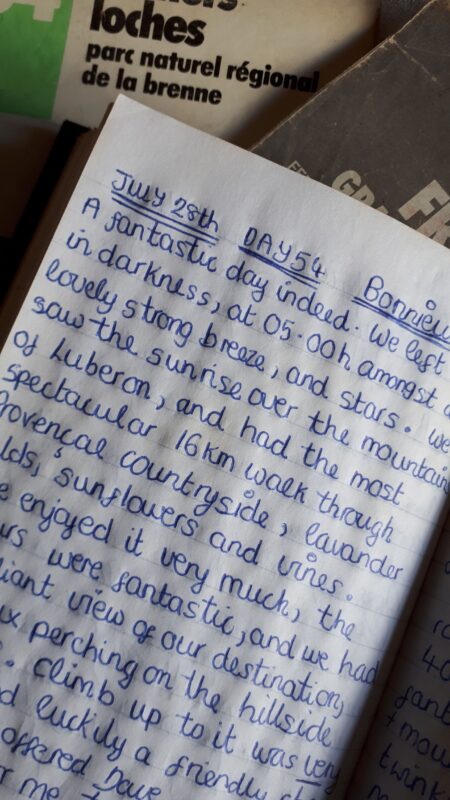 loches
parc naturel régional
de la brenne
GR
FR
JULY 28th DAY 54 Bonnieu
A fantastic day indeed. We left
in darkness, at 05.00h amongst a
lovely strong breeze, and stars. We
saw the sunrise over the mountain
of Luberon, and had the most
spectacular 16km walk through
Provençal countryside, lavander
lds, sunflowers and vines.
e enjoyed it very much, the
urs were fantastic, and we had
liant view of our destination,
ux perching on the hillside
climb up to it was very
d luckily a friendly
offered Dave
r me
40
fant
+ mou
twink